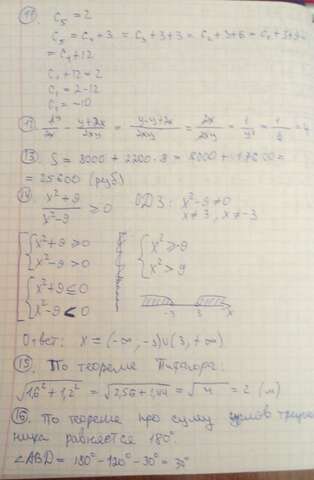 11. C₅ = 2
C₅ = C₄ + 3 = C₃ + 3 + 3 = C₂ + 3 + 6 = C₁ + 3 + 9 =
= C₁ + 12
C₁ + 12 = 2
C₁ = 2 - 12
C₁ = -10
- (y+2x)/(2xy) = = 2x/(2xy) =
13. S = 8000 + 2200 · 8 = 8000 + 17600 =
= 25600 (руб)
14. (x² + 9)/(x² - 9) ≥ 0 ОДЗ: x² - 9 ≠ 0
x ≠ 3, x ≠ -3
x² + 9 ≥ 0 x² ≥ -9
x² - 9 > 0 x² > 9
x² + 9 ≤ 0
x² - 9 < 0 -3 3 x
Ответ: x = (-∞, -3)∪(3, +∞)
15. По теореме Пифагора:
√(1,6² + 1,2²) = √(2,56 + 1,44) = √4 = 2 (м)
16. По теореме про суму углов треуголь
ника равняется 180°
∠ABD = 180° - 120° - 30° = 30°